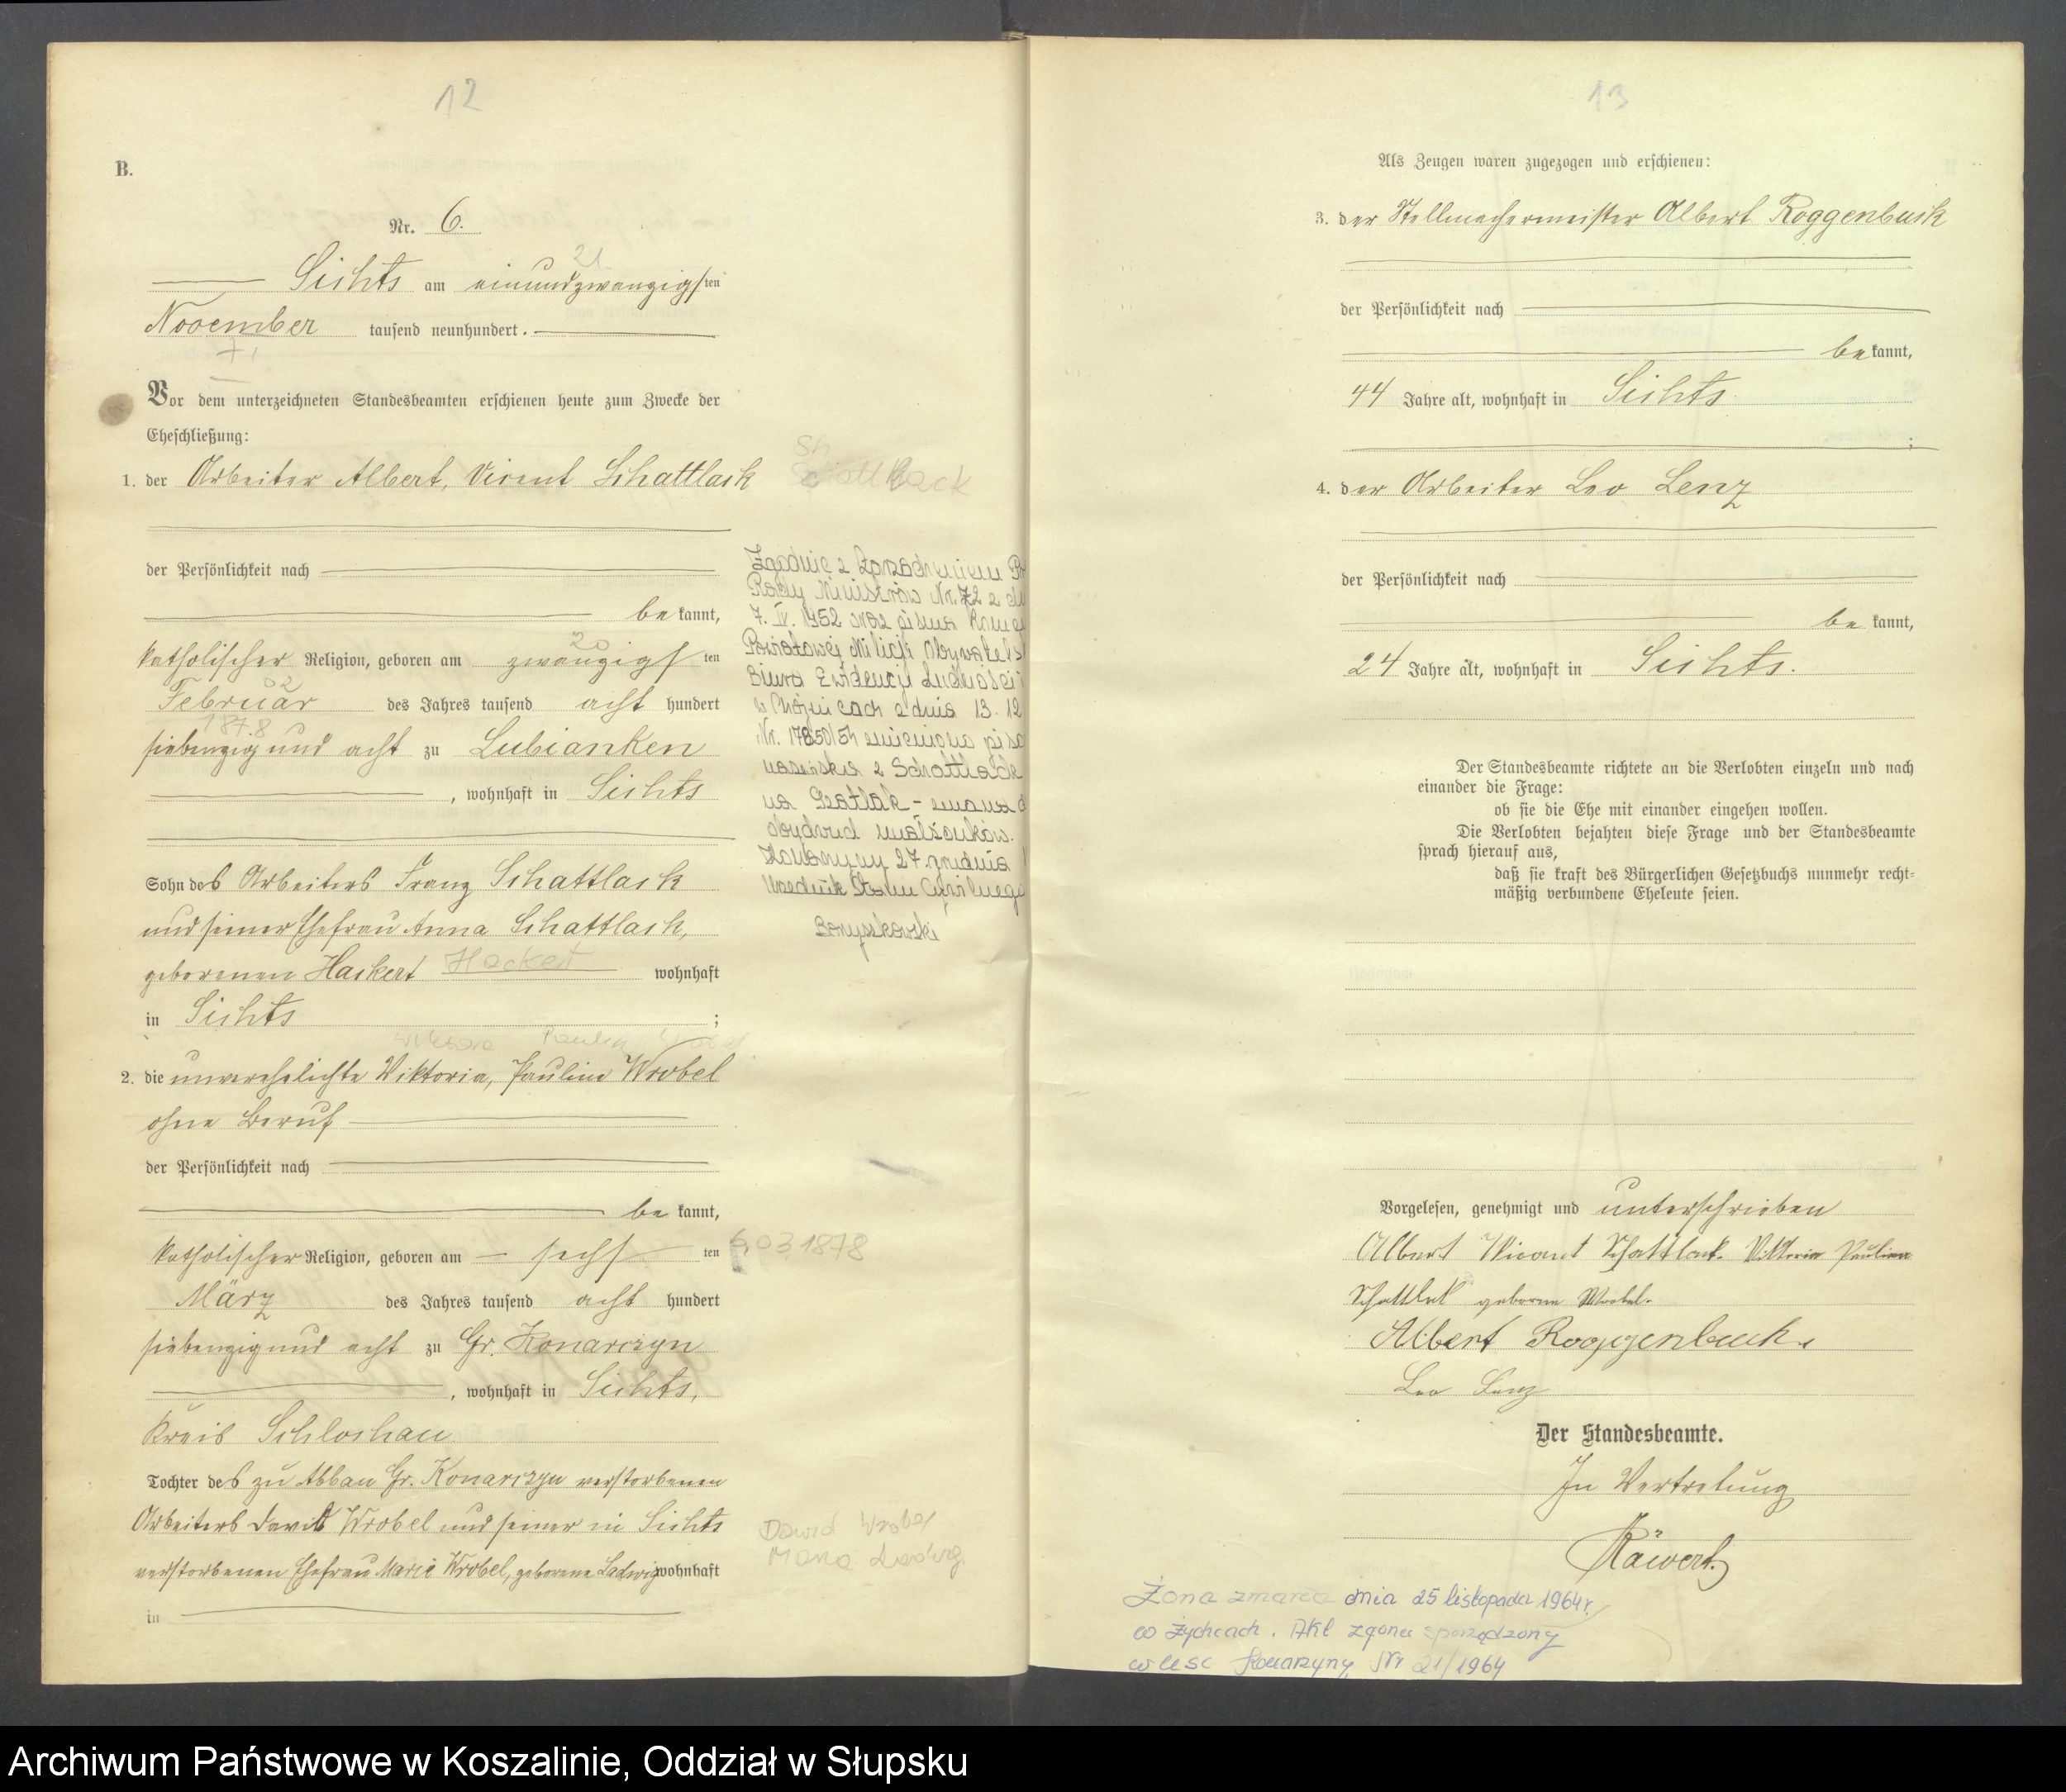 12
B.
Nr. 6.
21
Sichts am einundzwanzigsten
November tausend neunhundert.
Vor dem unterzeichneten Standesbeamten erschienen heute zum Zwecke der
Eheschließung:
1. der Arbeiter Albert, Vicent Schattlack
Schattlack
der Persönlichkeit nach
bekannt,
20
katholischer Religion, geboren am zwanzigsten
02
Februar des Jahres tausend acht hundert
1878
siebenzig und acht zu Lubianken
, wohnhaft in Sichts
Sohn des Arbeiters Franz Schattlack
und seiner Ehefrau Anna Schattlack,
geborenen Hackert Hackert wohnhaft
in Sichts ;
Wiktoria Paulin Wrobel
2. die unverehelichte Viktoria, Pauline Wrobel
ohne Beruf
der Persönlichkeit nach
bekannt,
katholischer Religion, geboren am sechsten
6.03.1878
März des Jahres tausend acht hundert
siebenzig und acht zu Gr. Konarczyn
, wohnhaft in Sichts,
Kreis Schlochau
Tochter des zu Abbau Gr. Konarczyn verstorbenen
Arbeiters David Wrobel und seiner in Sichts
verstorbenen Ehefrau Marie Wrobel, geborene Ladwig wohnhaft
in
Dawid Wrobel
Maria Ladwig
Zgodnie z Zarządzeniem
Rady Ministrów Nr. 72 z
7. IV. 1952 oraz pisma
Powiatowej Milicji
Biura Ewidencji Ludności
w Chojnicach z dnia 13. 12
Nr. zmieniono
nazwiska z Schattlack
na Szatlak - zmiana
obydwu małżonków.
Konarzyny 27 grudnia
Urzędnik Stanu Cywilnego
Boryszkowski
13
Als Zeugen waren zugezogen und erschienen:
3. der Stellmachermeister Albert Roggenbuck
der Persönlichkeit nach
bekannt,
44 Jahre alt, wohnhaft in Sichts
;
4. der Arbeiter Leo Lenz
der Persönlichkeit nach
bekannt,
24 Jahre alt, wohnhaft in Sichts.
Der Standesbeamte richtete an die Verlobten einzeln und nach
einander die Frage:
ob sie die Ehe mit einander eingehen wollen.
Die Verlobten bejahten diese Frage und der Standesbeamte
sprach hierauf aus,
daß sie kraft des Bürgerlichen Gesetzbuchs nunmehr recht-
mäßig verbundene Eheleute seien.
Vorgelesen, genehmigt und unterschrieben
Albert Vicent Schattlack. Viktoria Pauline
Schattlak geborne Wrobel.
Albert Roggenbuck.
Leo Lenz
Der Standesbeamte.
In Vertretung
Räwert.
Żona zmarła dnia 25 listopada 1964r.
w Żychcach. Akt zgonu sporządzony
w USC Konarzyny Nr 21/1964
Archiwum Państwowe w Koszalinie, Oddział w Słupsku